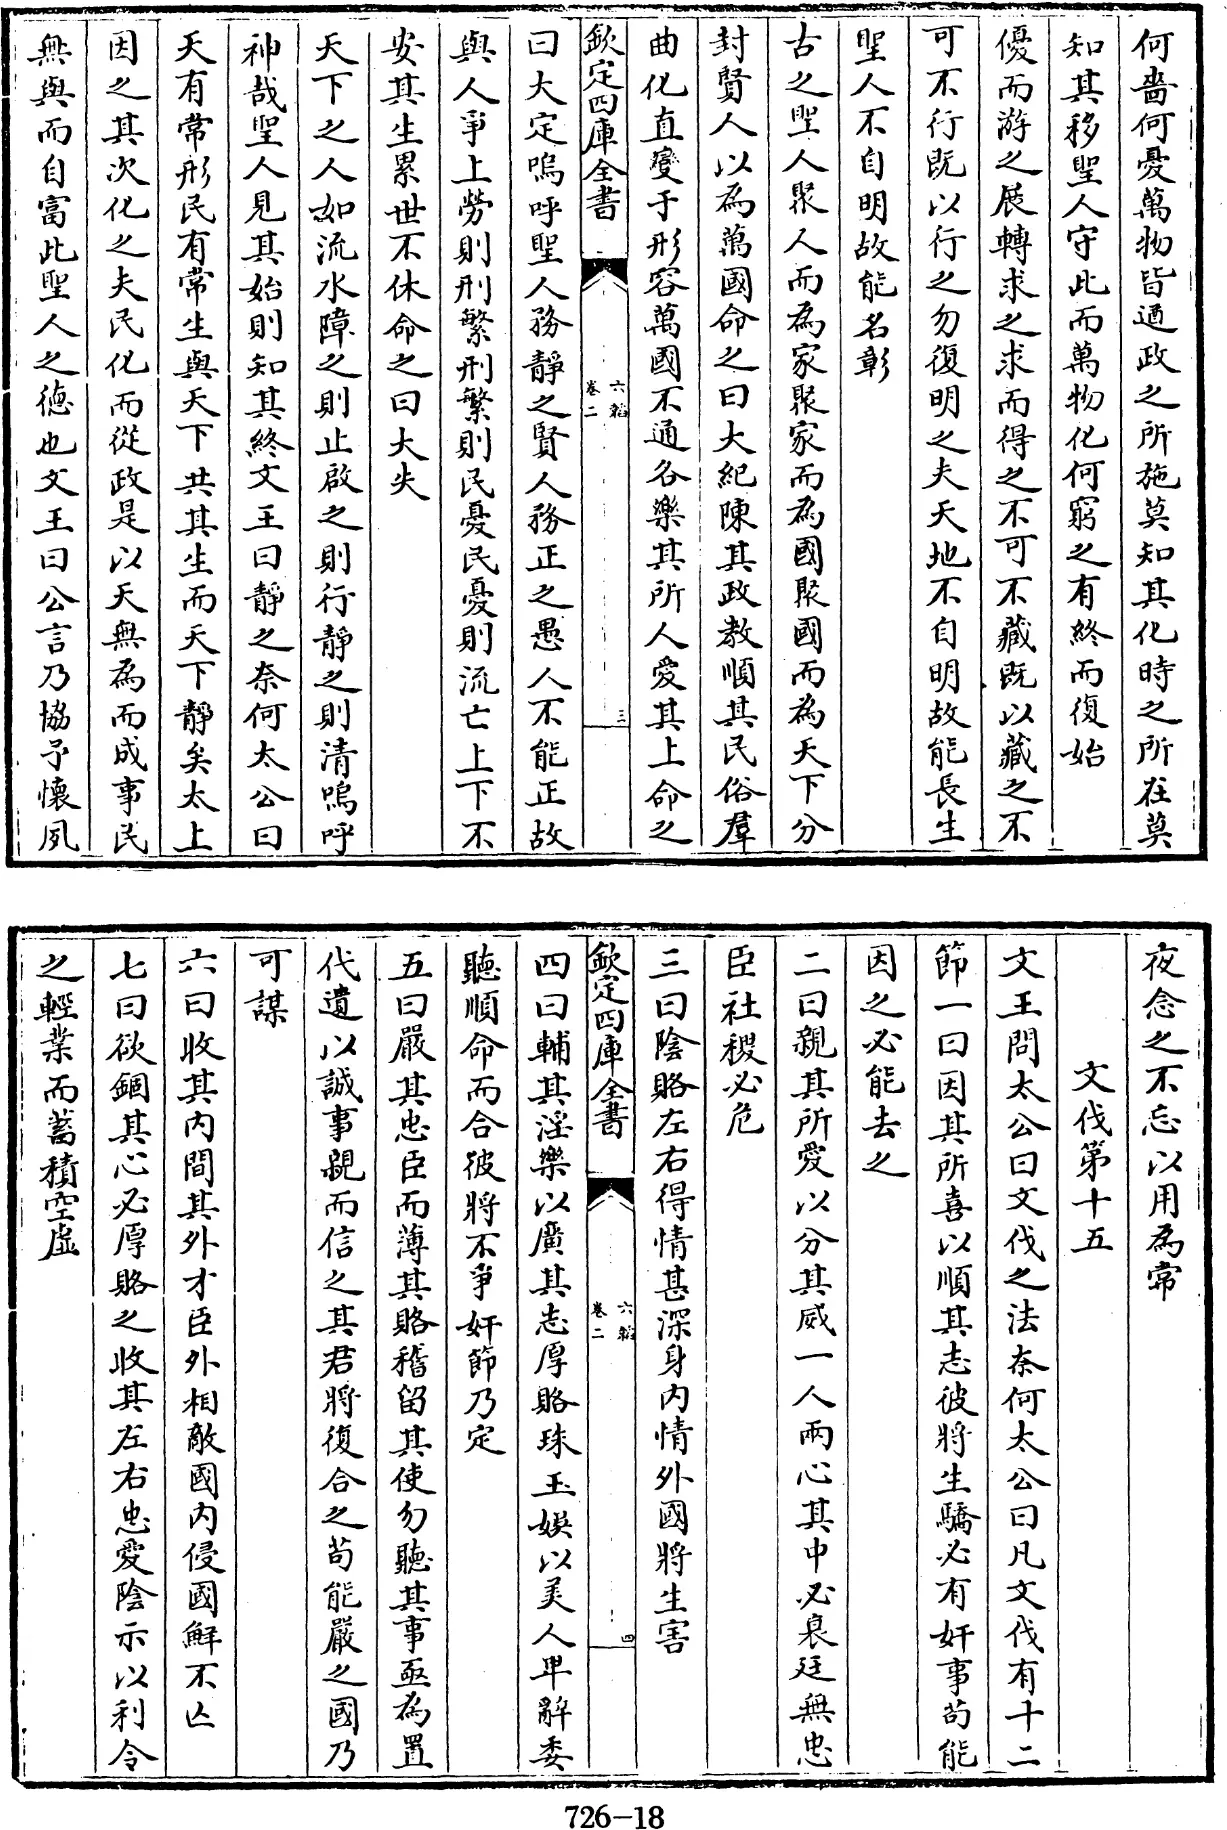 何嗇何憂萬物皆遒政之所施莫知其化時之所在莫
知其移聖人守此而萬物化何窮之有終而復始
優而游之展轉求之求而得之不可不藏既以藏之不
可不行既以行之勿復明之夫天地不自明故能長生
聖人不自明故能名彰
古之聖人聚人而為家聚家而為國聚國而為天下分
封賢人以為萬國命之曰大紀陳其政教順其民俗羣
曲化直變于形容萬國不通各樂其所人愛其上命之
欽定四庫全書
六韜
卷二
三
曰大定嗚呼聖人務靜之賢人務正之愚人不能正故
與人爭上勞則刑繁刑繁則民憂民憂則流亡上下不
安其生累世不休命之曰大失
天下之人如流水障之則止啟之則行靜之則清嗚呼
神哉聖人見其始則知其終文王曰靜之奈何太公曰
天有常形民有常生與天下共其生而天下靜矣太上
因之其次化之夫民化而從政是以天無為而成事民
無與而自富此聖人之德也文王曰公言乃協予懷夙
夜念之不忘以用為常
文伐第十五
文王問太公曰文伐之法奈何太公曰凡文伐有十二
節一曰因其所喜以順其志彼將生驕必有奸事苟能
因之必能去之
二曰親其所愛以分其威一人兩心其中必衰廷無忠
臣社稷必危
三曰陰賂左右得情甚深身內情外國將生害
欽定四庫全書
六韜
卷二
四
四曰輔其淫樂以廣其志厚賂珠玉娛以美人卑辭委
聽順命而合彼將不爭奸節乃定
五曰嚴其忠臣而薄其賂稽留其使勿聽其事亟為置
代遺以誠事親而信之其君將復合之苟能嚴之國乃
可謀
六曰收其內間其外才臣外相敵國內侵國鮮不亾
七曰欲錮其心必厚賂之收其左右忠愛陰示以利令
之輕業而蓄積空虛
726-18